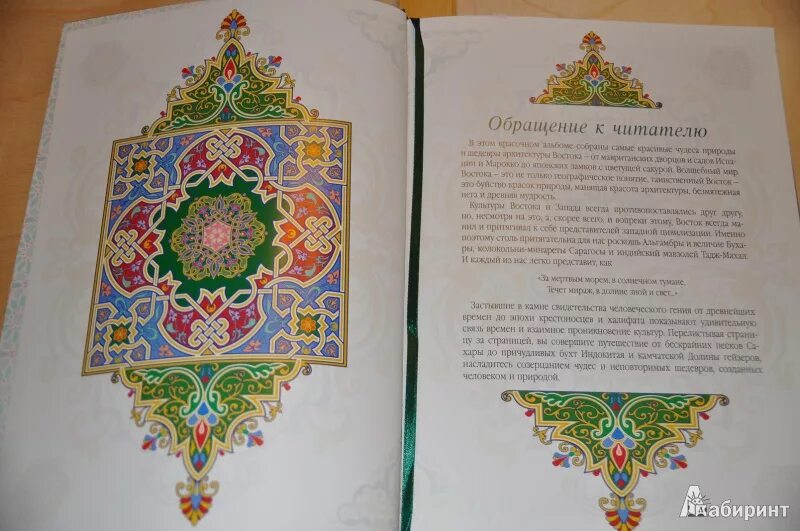 Обращение к читателю
В этом красочном альбоме собраны самые красивые чудеса природы
и шедевры архитектуры Востока – от мавританских дворцов и садов Испа-
нии и Марокко до японских замков с цветущей сакурой. Волшебный мир
Востока – это не только географическое понятие, таинственный Восток –
это буйство красок природы, манящая красота архитектуры, безмятежная
нега и древняя мудрость.
Культуры Востока и Запада всегда противопоставлялись друг другу,
но, несмотря на это, а, скорее всего, и вопреки этому, Восток всегда ма-
нил и притягивал к себе представителей западной цивилизации. Именно
поэтому столь притягательна для нас роскошь Альгамбры и величие Буха-
ры, колокольни-минареты Сарагосы и индийский мавзолей Тадж-Махал.
И каждый из нас легко представит, как
«За мертвым морем, в солнечном тумане,
Течет мираж, в долине зной и свет...»
Застывшие в камне свидетельства человеческого гения от древнейших
времен до эпохи крестоносцев и халифата показывают удивительную
связь времен и взаимное проникновение культур. Перелистывая страни-
цу за страницей, вы совершите путешествие от бескрайних песков Са-
хары до причудливых бухт Индокитая и камчатской Долины гейзеров,
насладитесь созерцанием чудес и неповторимых шедевров, созданных
человеком и природой.
Лабиринт